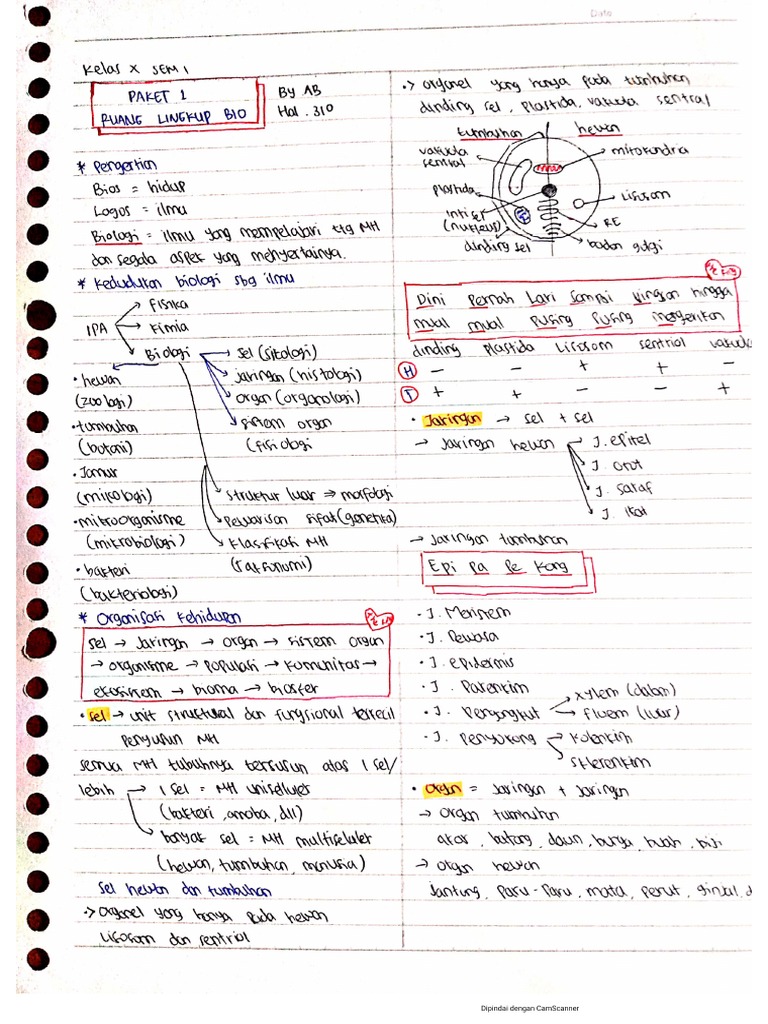 Date
Kelas X SEM 1
PAKET 1
RUANG LINGKUP BIO
By AB
Hal. 310
* Pengertian
Bios = hidup
Logos = ilmu
Biologi = ilmu yang mempelajari ttg MH
dan segala aspek yang menyertainya.
* Kedudukan biologi sbg ilmu
IPA
Fisika
Kimia
Biologi
• hewan
(zoologi)
• tumbuhan
(botani)
• Jamur
(mikologi)
• mikroorganisme
(mikrobiologi)
• bakteri
(bakteriologi)
sel (sitologi)
jaringan (histologi)
organ (organologi)
sistem organ
(fisiologi
struktur luar ⇒ morfologi
Pewarisan sifat (genetika)
Klasifikasi MH
(taksonomi)
* Organisasi Kehidupan
sel → Jaringan → organ → sistem organ
→ organisme → populasi → komunitas →
ekosistem → bioma → biosfer
• sel → unit struktural dan fungsional terkecil
penyusun MH
semua MH tubuhnya tersusun atas 1 sel/
lebih → 1 sel = MH uniseluler
(bakteri, amoba, dll)
banyak sel = MH multiseluler
(hewan, tumbuhan, manusia)
sel hewan dan tumbuhan
-> Organel yang hanya pada hewan
Lisosom dan sentriol
-> organel yang hanya pada tumbuhan
dinding sel, Plastida, vakuola sentral
tumbuhan
hewan
vakuola
sentral
Plastida
inti sel
(nukleus)
dinding sel
mitokondria
Lisosom
RE
badan golgi
Dini Pernah Lari Sampai Vingson hingga
mual mual Pusing Pusing mengerikan
dinding Plastida Lisosom sentriol vakuola
H - - + + -
T + + - - +
• Jaringan → sel + sel
→ Jaringan hewan
J. epitel
J. otot
J. saraf
J. ikat
→ Jaringan tumbuhan
Epi Pa Pe Kang
• J. Meristem
• J. Dewasa
• J. epidermis
• J. Parenkim
• J. Pengangkut
xylem (dalam)
Fluem (luar)
• J. Penyokong
Kolenkim
sklerenkim
• Organ = Jaringan + Jaringan
→ Organ tumbuhan
akar, batang, daun, bunga, buah, biji
→ Organ hewan
Jantung, Paru-Paru, mata, perut, ginjal, d
Dipindai dengan CamScanner